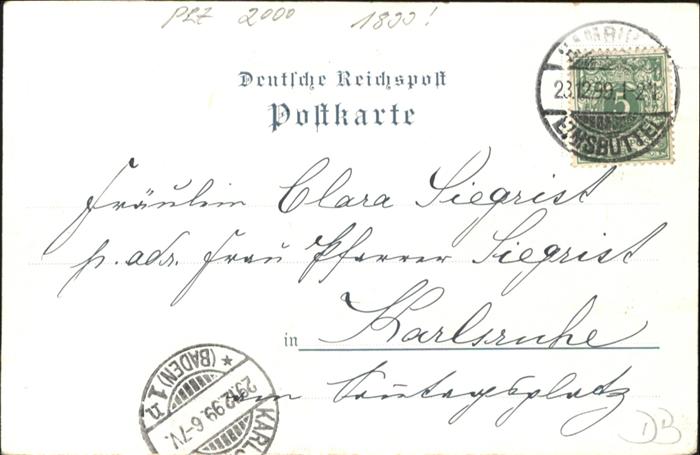 PLZ 2000 1800!
Deutsche Reichspost
Postkarte
HAMBURG
23.12.99. 1-2 N.
EIMSBÜTTEL
5
Fräulein Clara Siegrist
p. adr. Frau Pfarrer Siegrist
in Karlsruhe
am Sonntagsplatz
KARLS
29.12.99. 6-7V.
* (BADEN) 1 n.
DB